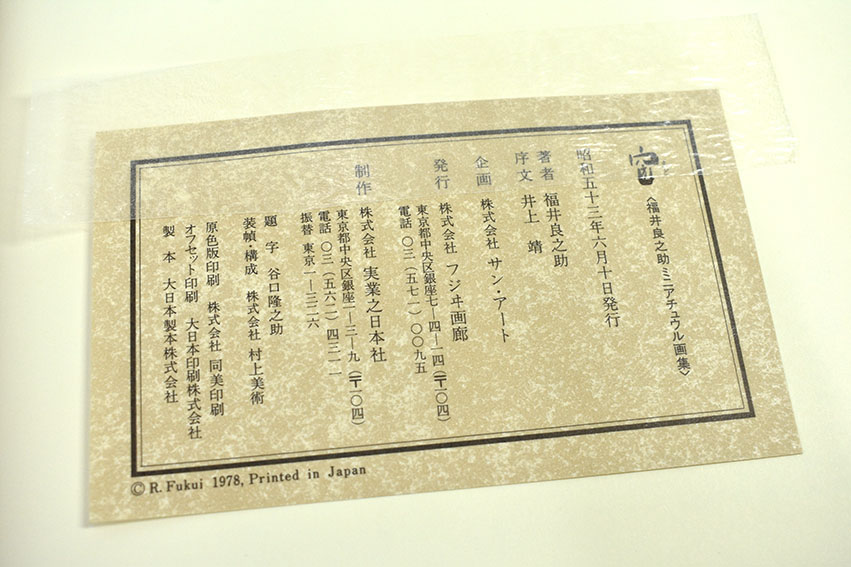 窓
〈福井良之助ミニアチュウル画集〉
昭和五十三年六月十日発行
著者 福井良之助
序文 井上 靖
企画 株式会社 サン・アート
発行 株式会社 フジヰ画廊
東京都中央区銀座七―四―一四(〒一〇四)
電話 〇三(五七一)〇〇九五
制作 株式会社 実業之日本社
東京都中央区銀座一―三―九(〒一〇四)
電話 〇三(五六二)四三一一
振替 東京一―三二六
題字 谷口隆之助
装幀・構成 株式会社 村上美術
原色版印刷 株式会社 同美印刷
オフセット印刷 大日本印刷株式会社
製本 大日本製本株式会社
© R. Fukui 1978, Printed in Japan